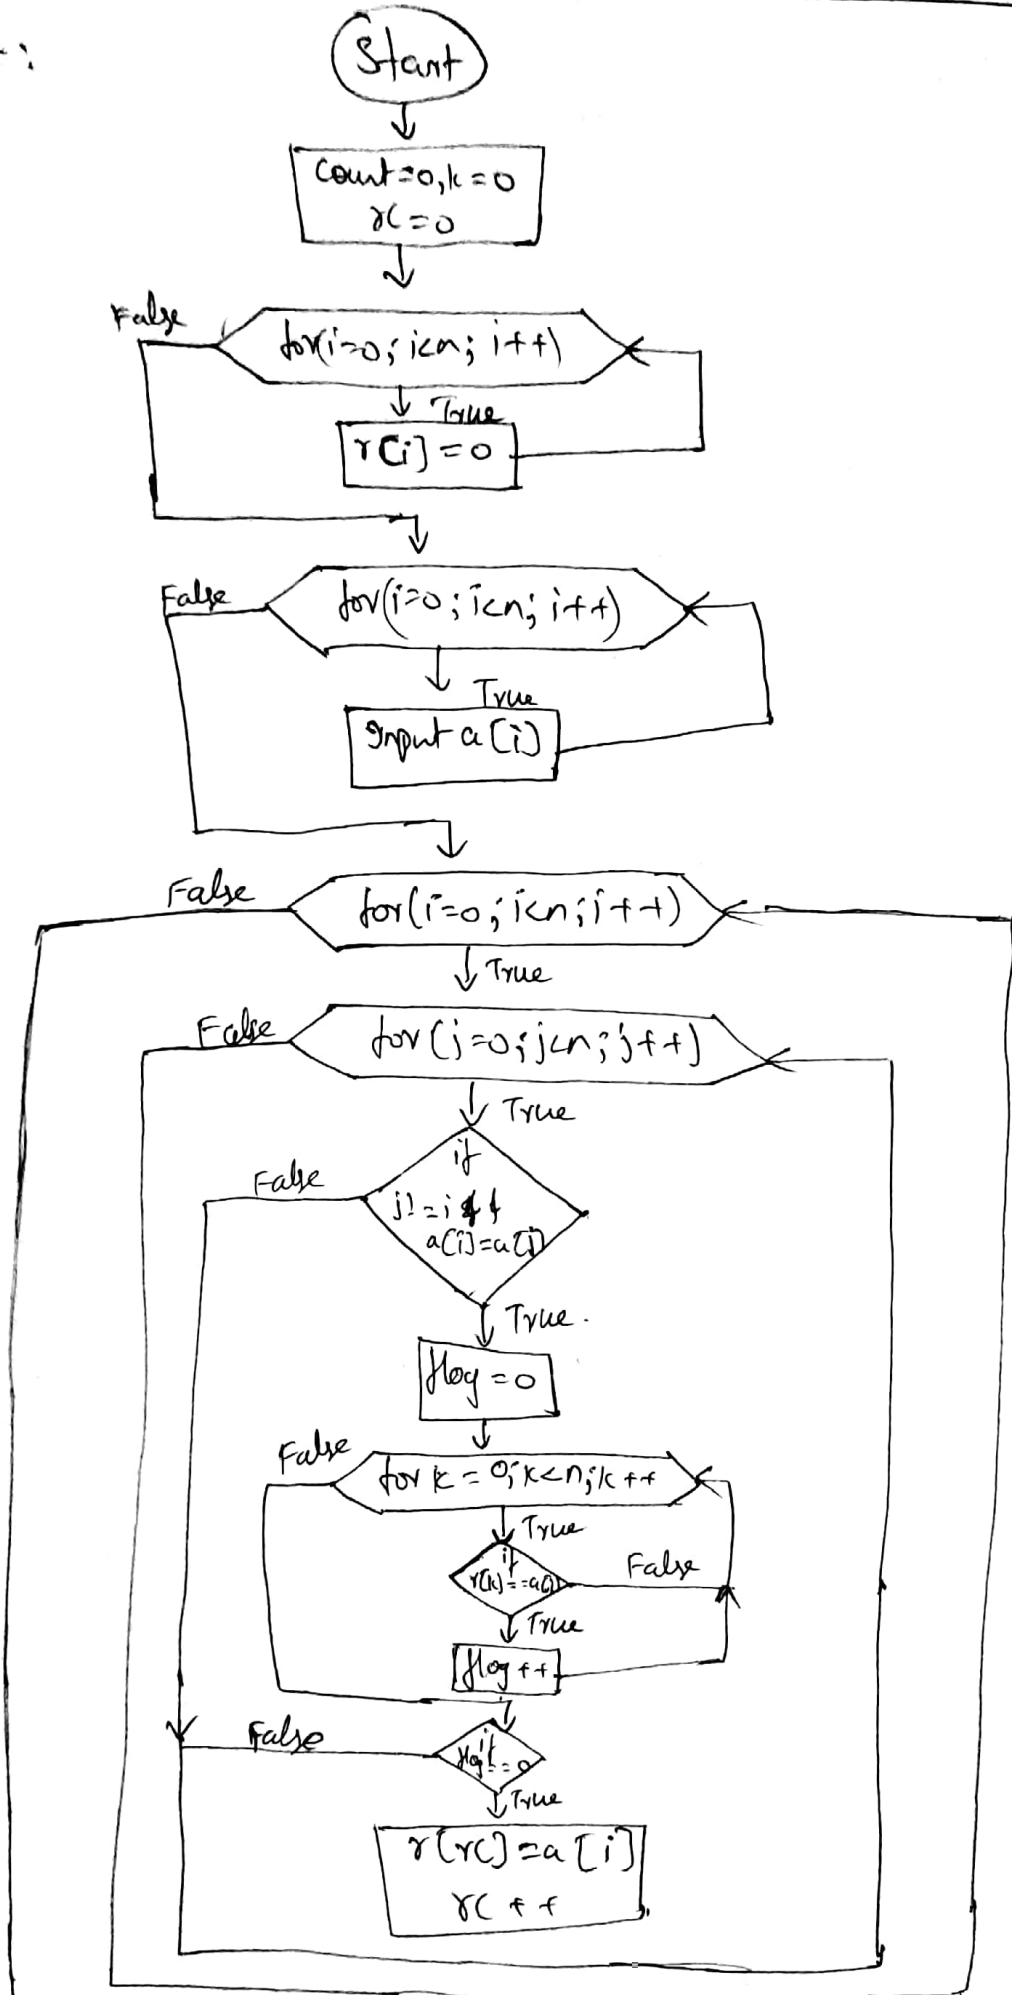 Start
Count=0,k=0
rc=0
False
for(i=0;i<n;i++)
True
r[i]=0
False
for(i=0;i<n;i++)
True
Input a[i]
False
for(i=0;i<n;i++)
True
False
for(j=0;j<n;j++)
True
if
False
j!=i &&
a[i]=a[j]
True.
flag=0
False
for k=0;k<n;k++
True
if
False
r[k]==a[i]
True
flag++
False
if
flag!=0
True
r[rc]=a[i]
rc++